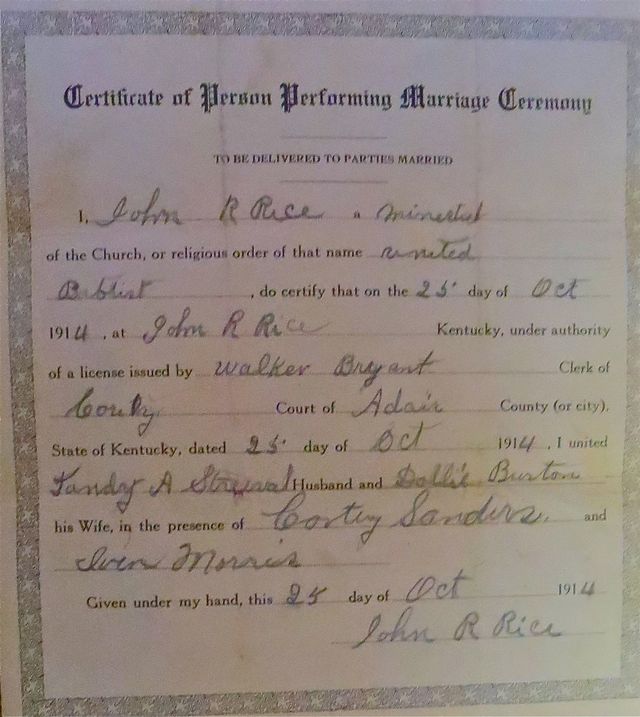 Certificate of Person Performing Marriage Ceremony
TO BE DELIVERED TO PARTIES MARRIED
I, John R Rice a
of the Church, or religious order of that name united
Babtist , do certify that on the 25 day of Oct
1914 , at John R Rice Kentucky, under authority
of a license issued by Walker Bryant Clerk of
Court of Adair County (or city).
State of Kentucky, dated 25 day of Oct 1914 , I united
A Husband and Dollie Burton
his Wife, in the presence of Sanders. and
Morris
Given under my hand, this 25 day of Oct 1914
John R Rice